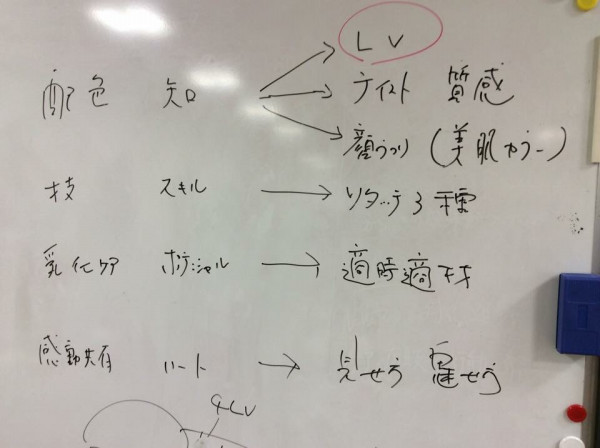 LV
配色 知 → テイスト 質感
顔うつり (美肌カラー)
技 スキル → リタッチ3種
乳化ケア ポテンシャル → 適時適材
感動共有 ハート → 見せ方 魅せ方
4LV